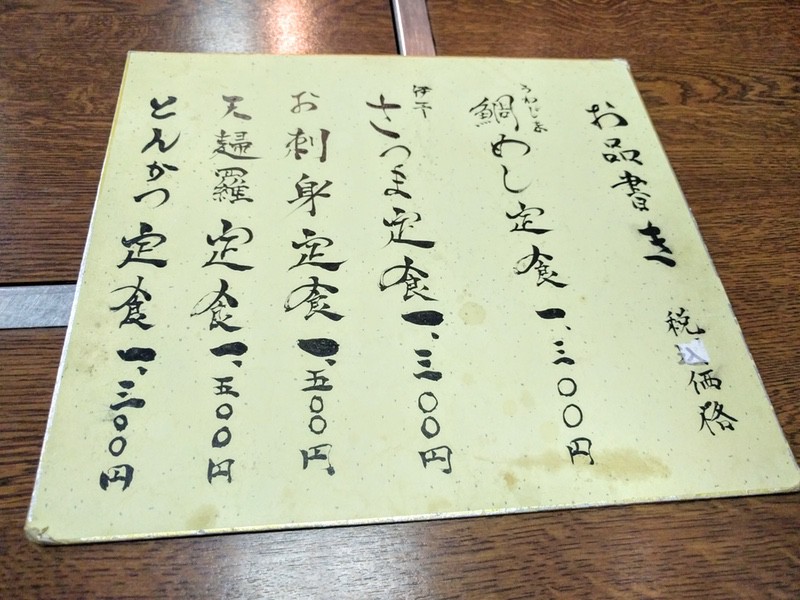 お品書き
税込価格
うわじま
鯛めし定食 一、三〇〇円
伊予
さつま定食 一、三〇〇円
お刺身定食 一、五〇〇円
天婦羅定食 一、五〇〇円
とんかつ定食 一、三〇〇円